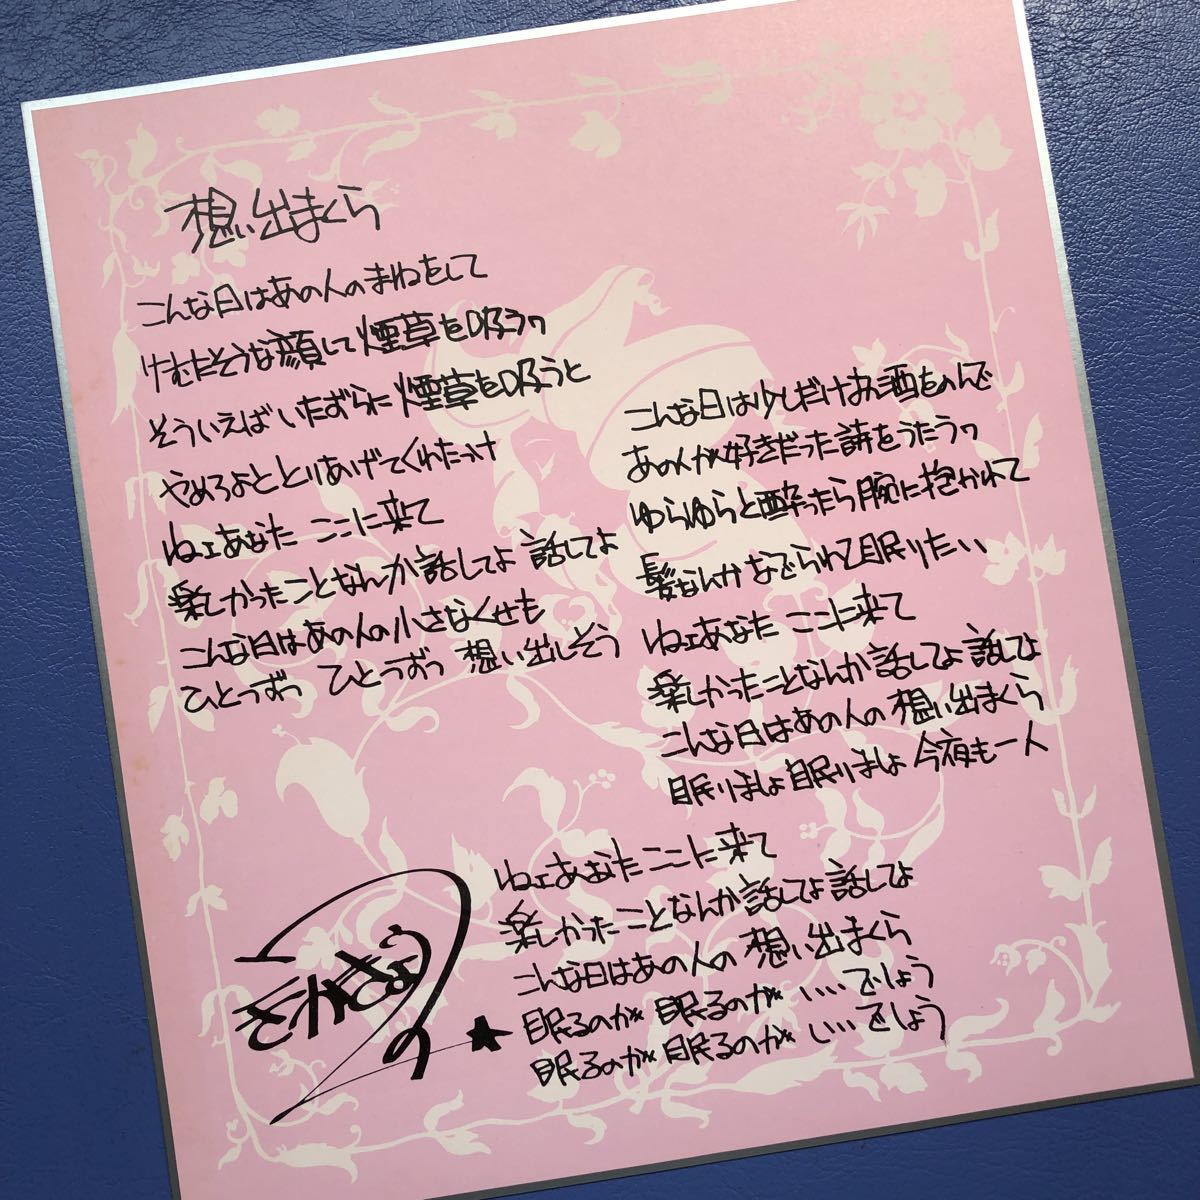 想い出まくら
こんな日はあの人のまねをして
けむたそうな顔して煙草を吸うワ
そういえばいたずらに煙草を吸うと
やめろよととりあげてくれたっけ
ねェあなた ここに来て
楽しかったことなんか話してよ 話してよ
こんな日はあの人の小さなくせも
ひとつずつ ひとつずつ 想い出しそう
こんな日は少しだけお酒をのんで
あの人が好きだった詩をうたうワ
ゆらゆらと酔ったら腕に抱かれて
髪なんかなでられて眠りたい
ねェあなた ここに来て
楽しかったことなんか話してよ 話してよ
こんな日はあの人の 想い出まくら
眠りましょ 眠りましょ 今夜も一人
ねェあなた ここに来て
楽しかったことなんか話してよ 話してよ
こんな日はあの人の 想い出まくら
眠るのが 眠るのが いい…でしょう
眠るのが 眠るのが いい…でしょう